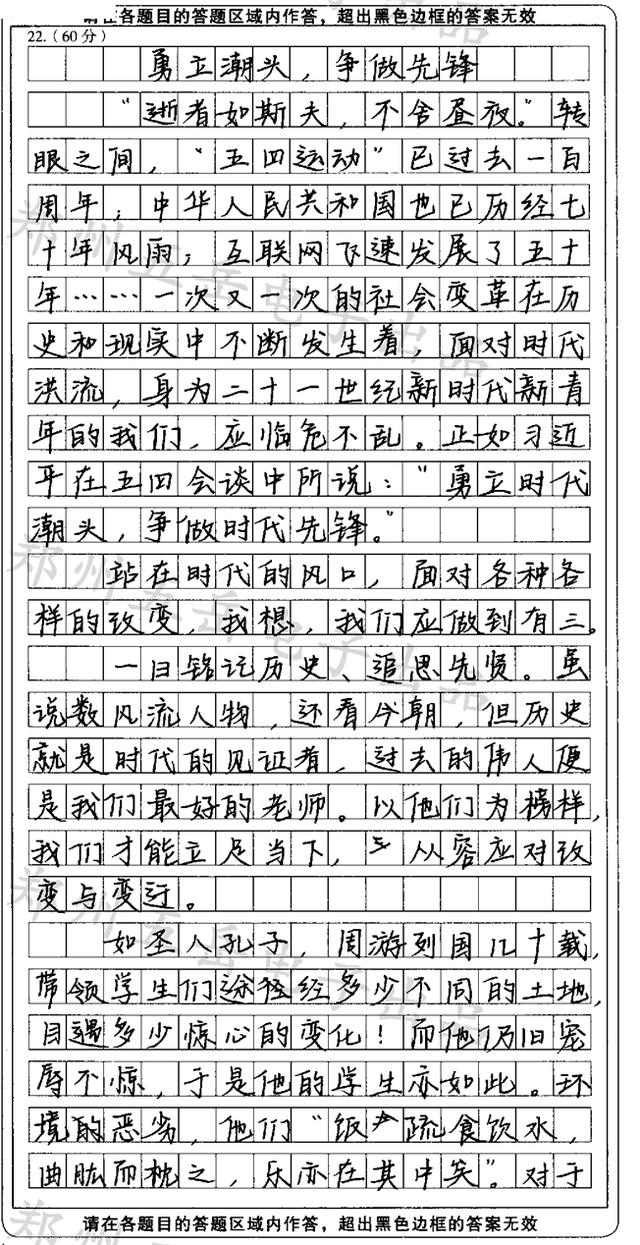 请在各题目的答题区域内作答，超出黑色边框的答案无效
22.（60分）
勇立潮头，争做先锋
“逝者如斯夫，不舍昼夜。”转
眼之间，“五四运动”已过去一百
周年，中华人民共和国也已历经七
十年风雨，互联网飞速发展了五十
年……一次又一次的社会变革在历
史和现实中不断发生着，面对时代
洪流，身为二十一世纪新时代新青
年的我们，应临危不乱。正如习近
平在五四会谈中所说：“勇立时代
潮头，争做时代先锋。”
站在时代的风口，面对各种各
样的改变，我想，我们应做到有三。
一曰铭记历史、追思先贤。虽
说数风流人物，还看今朝，但历史
就是时代的见证者，过去的伟人便
是我们最好的老师。以他们为榜样，
我们才能立足当下，从容应对改
变与变迁。
如圣人孔子，周游列国几十载，
带领学生们途径经多少不同的土地，
目遇多少惊心的变化！而他仍旧宠
辱不惊，于是他的学生亦如此。环
境的恶劣，他们“饭疏食饮水，
曲肱而枕之，乐亦在其中矣”。对于
请在各题目的答题区域内作答，超出黑色边框的答案无效
郑州五岳电子出品
郑州五岳电子出品
郑州五岳电子出品